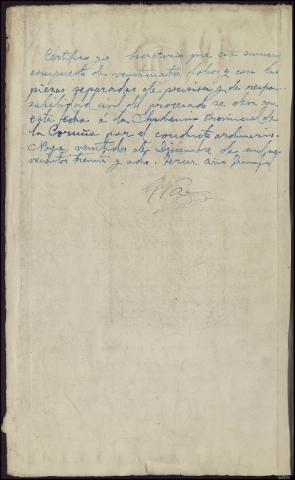 Certifico yo Secretario que este sumario
compuesto de veinticuatro folios y con las
piezas separadas de prision y de respon-
sabilidad civil del procesado se eleva con
esta fecha á la Audiencia Provincial de
la Coruña por el conducto ordinario.
Noya, veintidos de Diciembre de mil no-
vecientos treinta y ocho. Tercer Año Triunfal